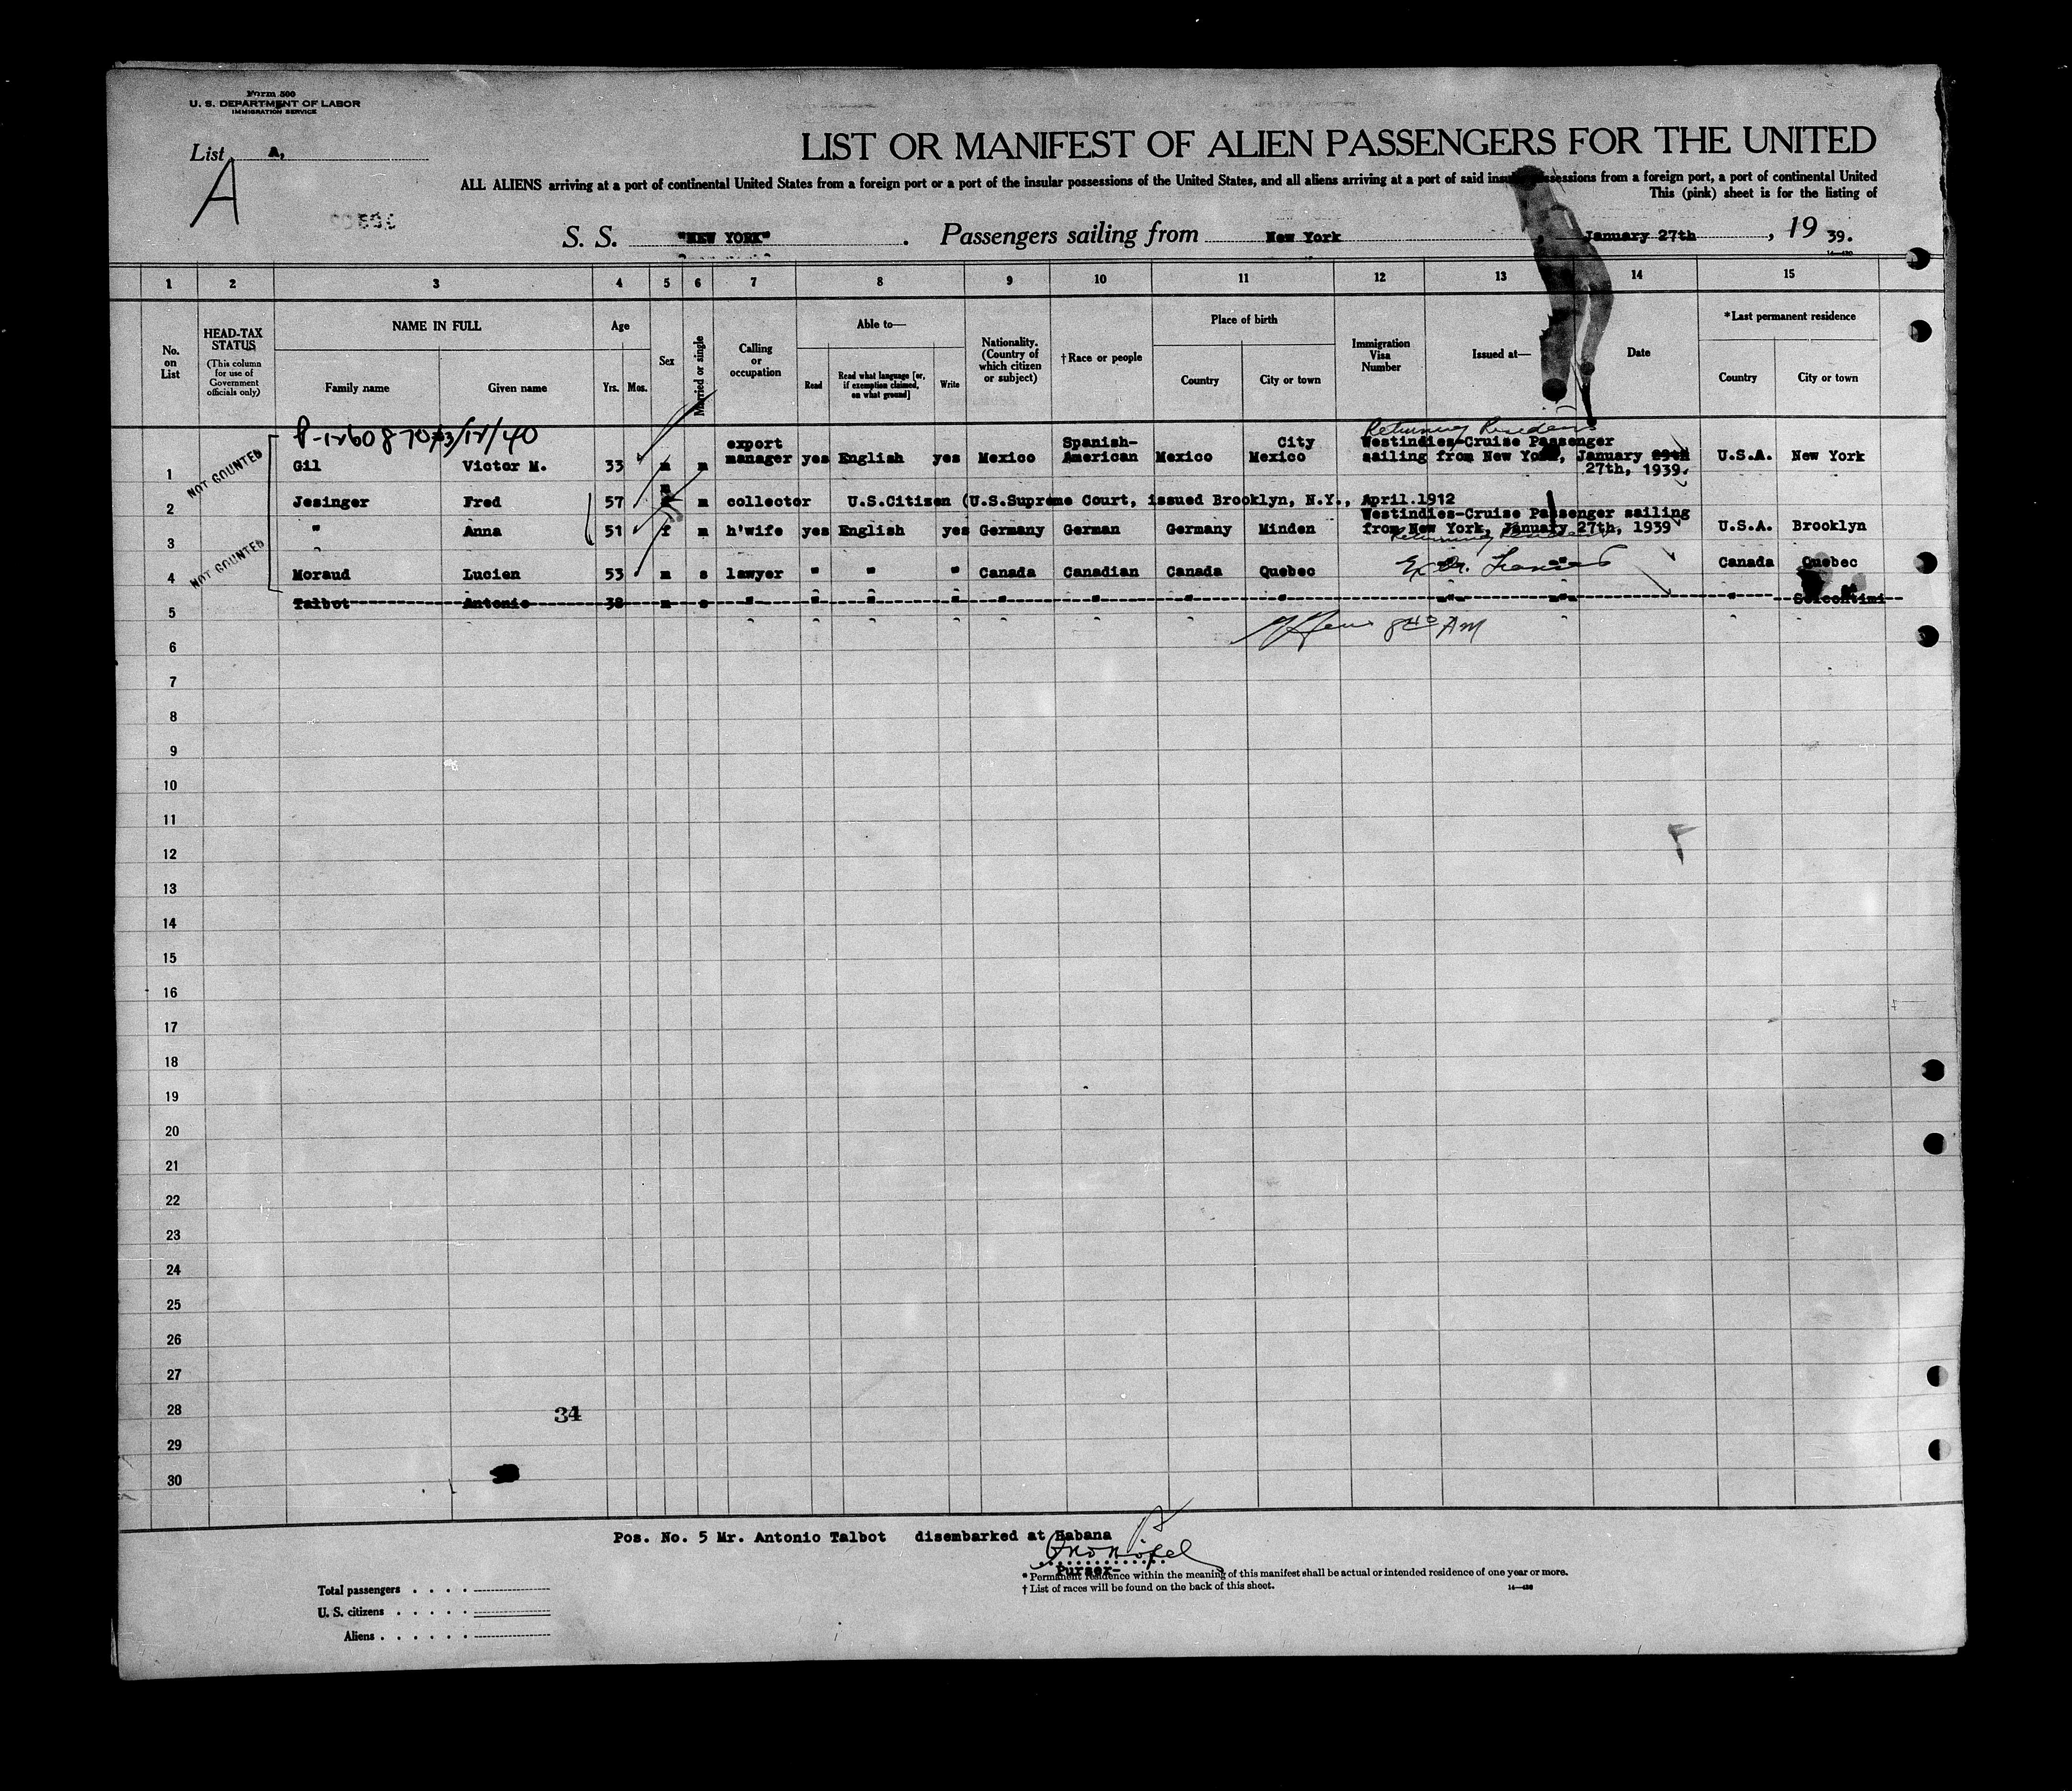 Form 500
U. S. DEPARTMENT OF LABOR
IMMIGRATION SERVICE
List A,
A
LIST OR MANIFEST OF ALIEN PASSENGERS FOR THE UNITED
ALL ALIENS arriving at a port of continental United States from a foreign port or a port of the insular possessions of the United States, and all aliens arriving at a port of said insular possessions from a foreign port, a port of continental United
This (pink) sheet is for the listing of
S. S. "NEW YORK" . Passengers sailing from New York January 27th , 19 39.
1 2 3 4 5 6 7 8 9 10 11 12 13 14 15
No. on List
HEAD-TAX STATUS (This column for use of Government officials only)
NAME IN FULL Family name Given name
Age Yrs. Mos.
Sex
Married or single
Calling or occupation
Able to— Read Read what language [or, if exemption claimed, on what ground] Write
Nationality. (Country of which citizen or subject)
†Race or people
Place of birth Country City or town
Immigration Visa Number
Issued at—
Date
*Last permanent residence Country City or town
P-1260870 3/12/40
NOT COUNTED
Returning Resident
1 Gil Victor M. 33 m m export manager yes English yes Mexico Spanish-American Mexico City Mexico Westindies-Cruise Passenger sailing from New York, January 29th 27th, 1939. U.S.A. New York
2 Jesinger Fred 57 m m collector U.S.Citizen (U.S.Supreme Court, issued Brooklyn, N.Y., April.1912
3 " Anna 51 f m h'wife yes English yes Germany German Germany Minden Westindies-Cruise Passenger sailing from New York, January 27th, 1939 U.S.A. Brooklyn
Returning Resident
NOT COUNTED
4 Moraud Lucien 53 m s lawyer " " " Canada Canadian Canada Quebec Canada Quebec
5 Talbot Antonio 38 m s " " " " " " " " "- "- "
8 40 AM
6
7
8
9
10
11
12
13
14
15
16
17
18
19
20
21
22
23
24
25
26
27
28
34
29
30
Pos. No. 5 Mr. Antonio Talbot disembarked at Habana
Purser-
* Permanent residence within the meaning of this manifest shall be actual or intended residence of one year or more.
† List of races will be found on the back of this sheet.
Total passengers . . . .
U. S. citizens . . . . .
Aliens . . . . . .